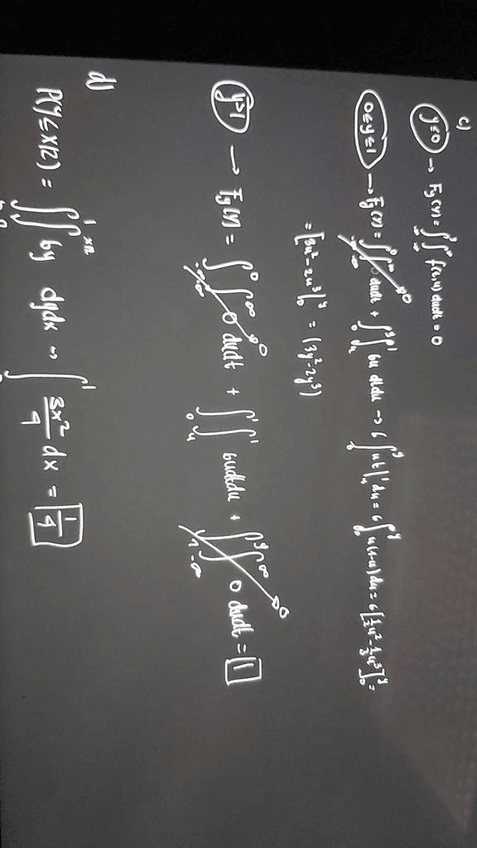 c)
y≤0 → Fy(y) = ∫∫ f(t,u) dudt = 0
0≤y≤1 → Fy(y) = ∫∫ 0 dudt + ∫∫ 6u dtdu → 6 ∫ ut| du = 6 ∫ u(1-u) du = 6[½u² - ⅓u³]₀ʸ =
= [3u² - 2u³]₀ʸ = (3y² - 2y³)
y>1 → Fy(y) = ∫∫ 0 dudt + ∫∫ 6u dtdu + ∫∫ 0 dudt = 1
d)
P(Y≤X/2) = ∫∫ 6y dydx → ∫ 3x²/4 dx = 1/4